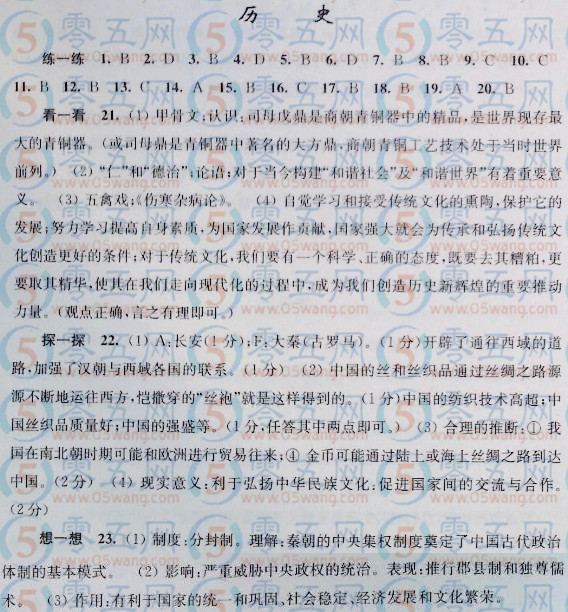 历 史
练一练 1. B 2. D 3. B 4. D 5. B 6. D 7. B 8. B 9. C 10. C
11. B 12. B 13. C 14. A 15. B 16. C 17. B 18. B 19. A 20. B
看一看 21. (1) 甲骨文;认识:司母戊鼎是商朝青铜器中的精品,是世界现存最
大的青铜器。(或司母鼎是青铜器中著名的大方鼎,商朝青铜工艺技术处于当时世界
前列。) (2) “仁”和“德治”;论语;对于当今构建“和谐社会”及“和谐世界”有着重要意
义。 (3) 五禽戏;《伤寒杂病论》。 (4) 自觉学习和接受传统文化的熏陶,保护它的
发展;努力学习提高自身素质,为国家发展作贡献,国家强大就会为传承和弘扬传统文
化创造更好的条件;对于传统文化,我们要有一个科学、正确的态度,既要去其糟粕,更
要取其精华,使其在我们走向现代化的过程中,成为我们创造历史新辉煌的重要推动
力量。(观点正确,言之有理即可。)
探一探 22. (1) A:长安(1分);F:大秦(古罗马)。(1分)开辟了通往西域的道
路,加强了汉朝与西域各国的联系。(1分) (2) 中国的丝和丝织品通过丝绸之路源
源不断地运往西方,恺撒穿的“丝袍”就是这样得到的。(1分)中国的纺织技术高超;中
国丝织品质量好;中国的强盛等。(1分,任答其中两点即可。) (3) 合理的推断:① 我
国在南北朝时期可能和欧洲进行贸易往来;④ 金币可能通过陆上或海上丝绸之路到达
中国。(2分) (4) 现实意义:利于弘扬中华民族文化,促进国家间的交流与合作。
(2分)
想一想 23. (1) 制度:分封制。理解:秦朝的中央集权制度奠定了中国古代政治
体制的基本模式。 (2) 影响:严重威胁中央政权的统治。表现:推行郡县制和独尊儒
术。 (3) 作用:有利于国家的统一和巩固、社会稳定、经济发展和文化繁荣。